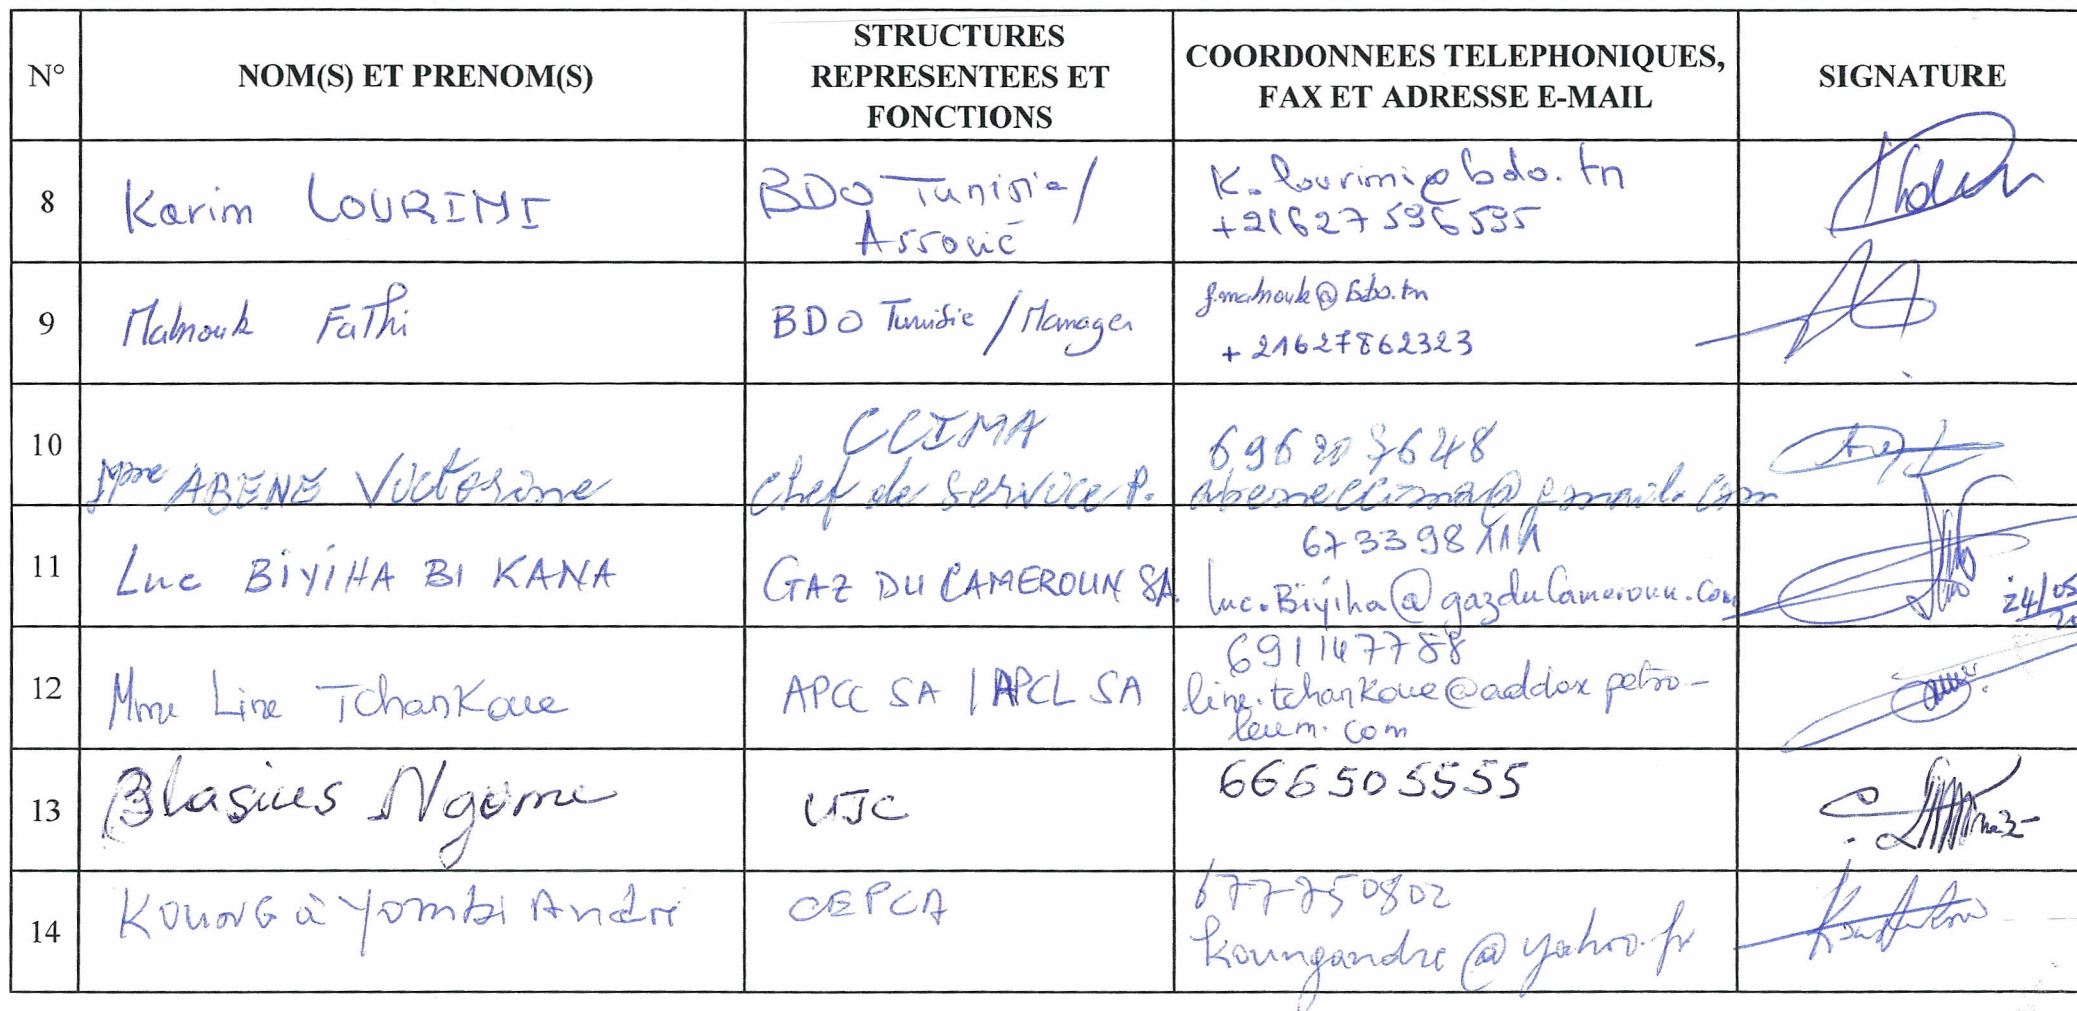 N°
NOM(S) ET PRENOM(S)
STRUCTURES
REPRESENTEES ET
FONCTIONS
COORDONNEES TELEPHONIQUES,
FAX ET ADRESSE E-MAIL
SIGNATURE
8
Karim LOURIMI
BDO Tunisie/
Associé
K.lourimi@bdo.tn
+21627596595
9
Mabrouk Fathi
BDO Tunisie / Manager
f.mabrouk@bdo.tn
+21627862323
10
Mme ABENE Victorine
CCIMA
Chef de Service P.
abeneccima@gmail.com
11
Luc BIYIHA BI KANA
GAZ DU CAMEROUN SA
673398111
luc.Biyiha@gazduCameroun.com
24/05
12
Mme Line TchanKoue
APCC SA / APCL SA
691147788
line.tchanKoue@addax petro-
leum.com
13
Blasius Ngome
UJC
666505555
14
KOUNG à Yombi André
CEPCA
677750802
koungandre@yahoo.fr